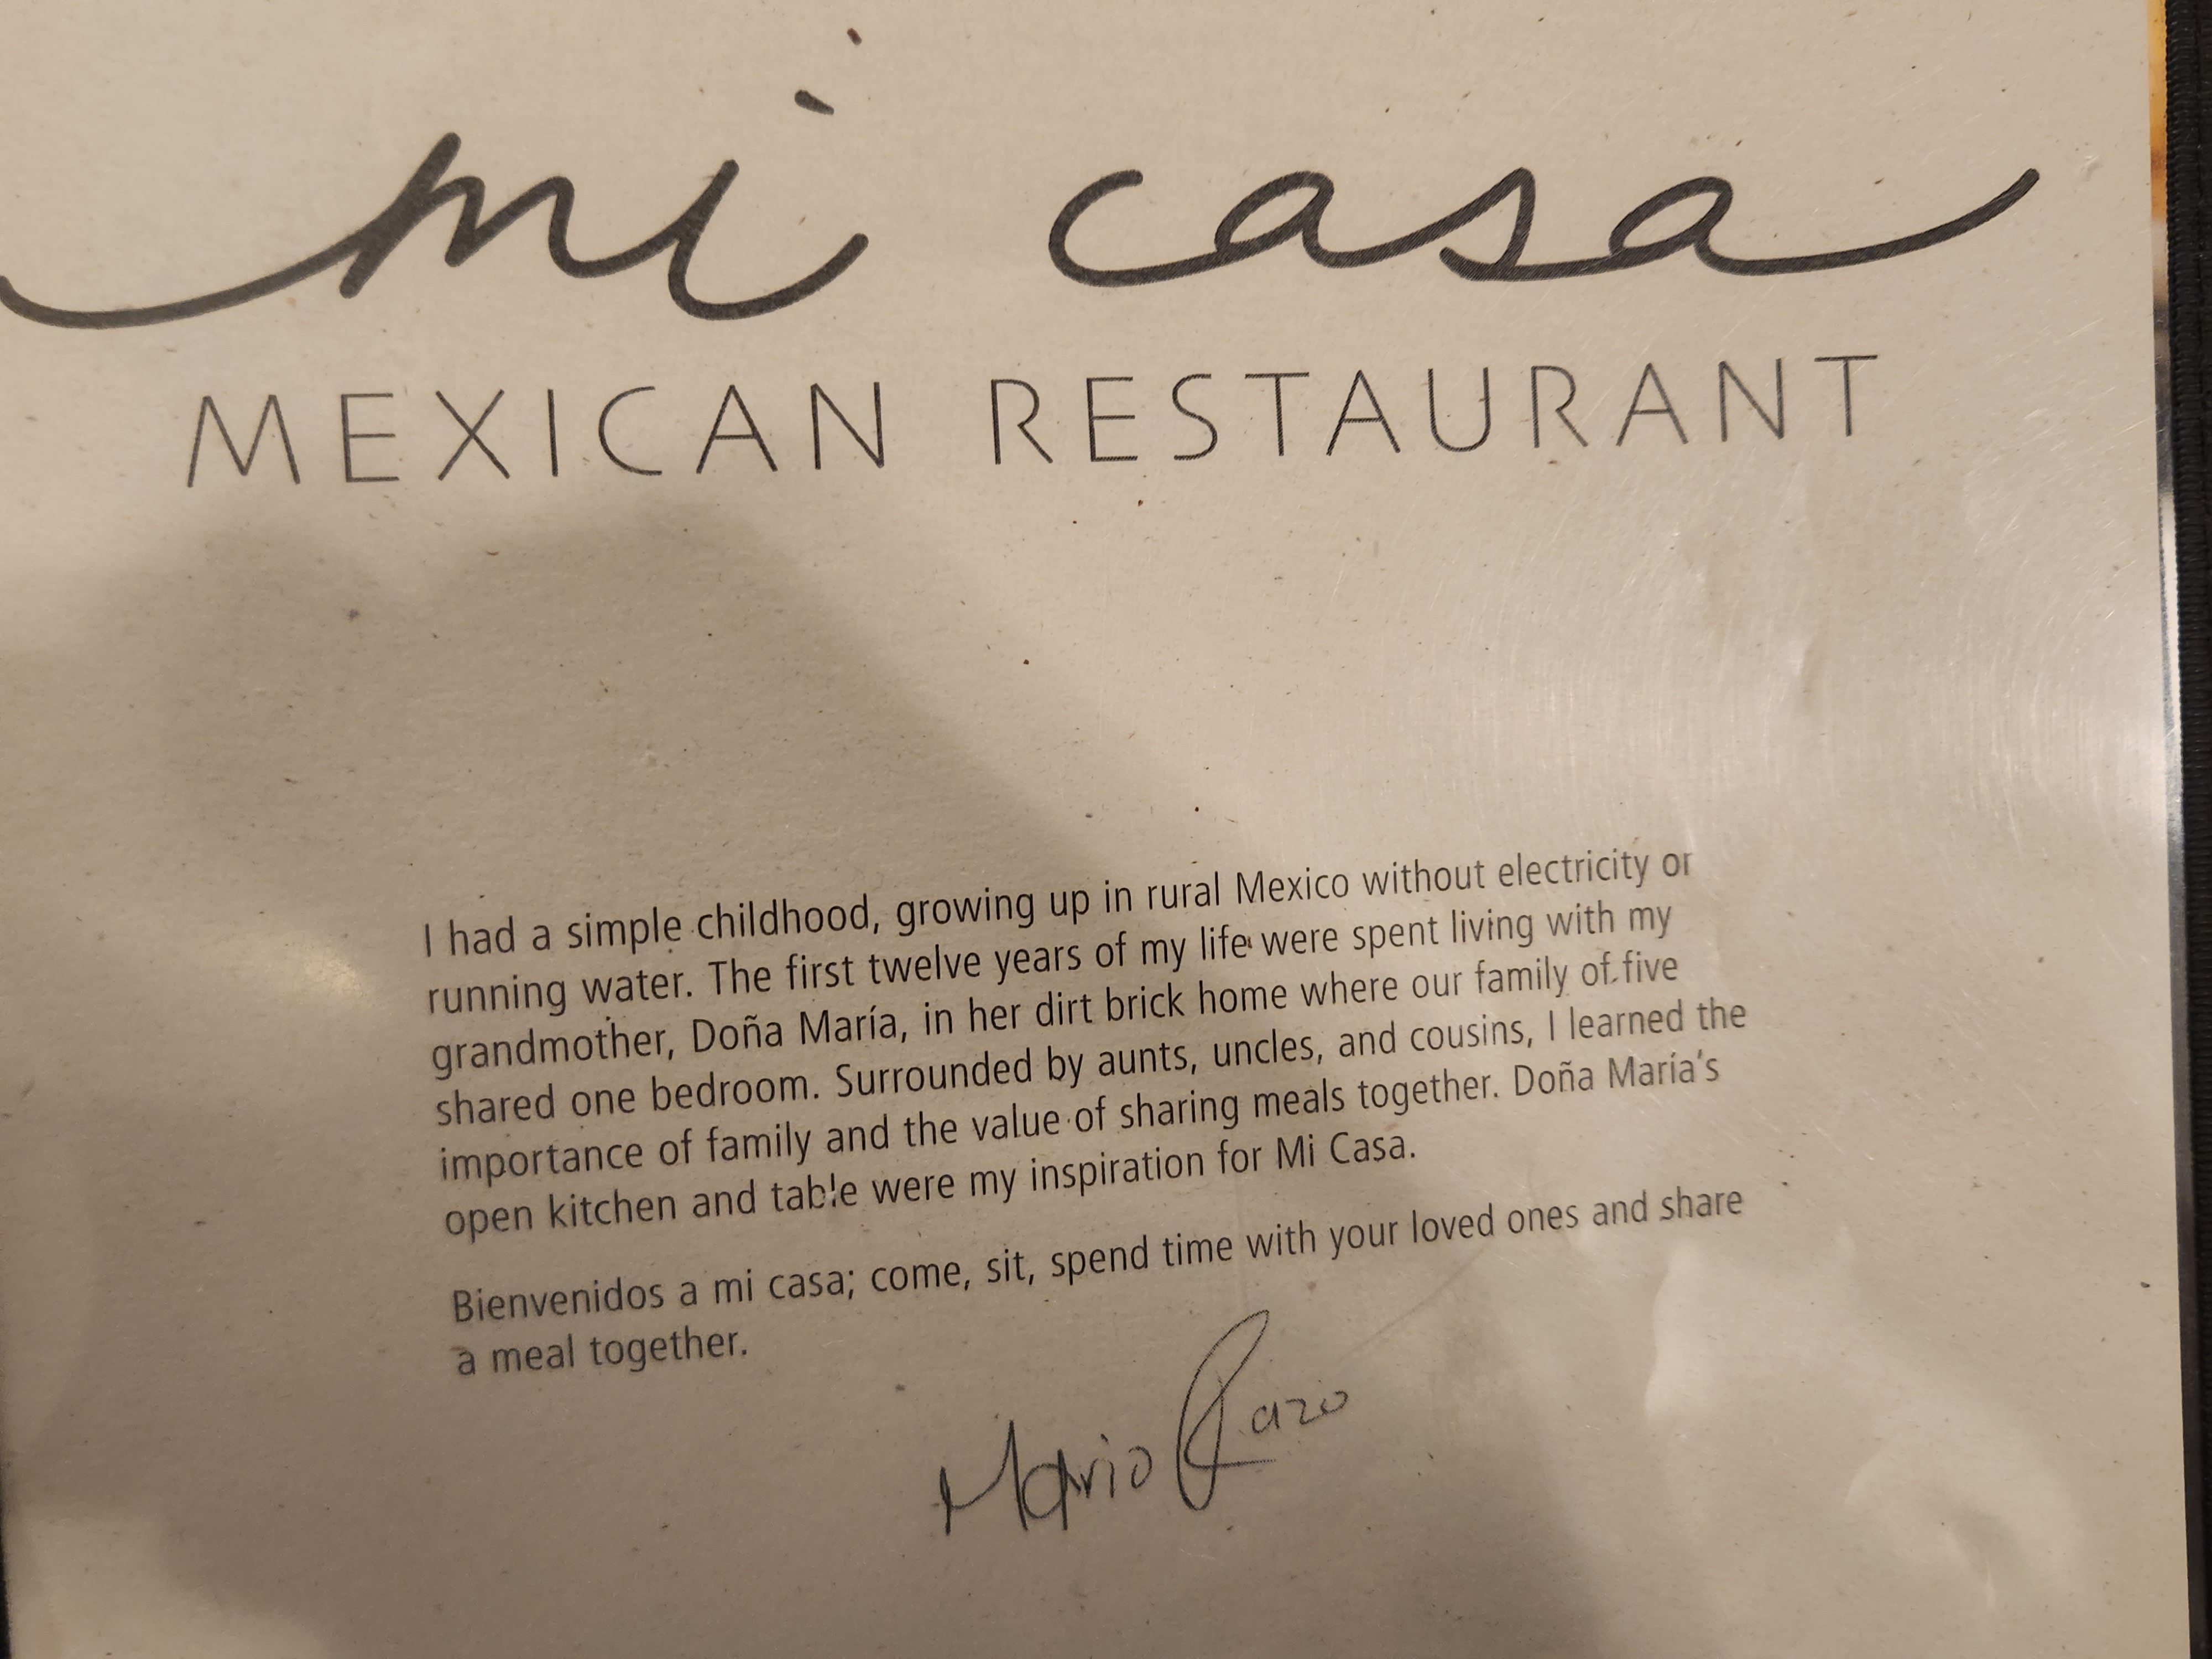 mi casa
MEXICAN RESTAURANT
I had a simple childhood, growing up in rural Mexico without electricity or
running water. The first twelve years of my life were spent living with my
grandmother, Doña María, in her dirt brick home where our family of five
shared one bedroom. Surrounded by aunts, uncles, and cousins, I learned the
importance of family and the value of sharing meals together. Doña María's
open kitchen and table were my inspiration for Mi Casa.
Bienvenidos a mi casa; come, sit, spend time with your loved ones and share
a meal together.
Mario